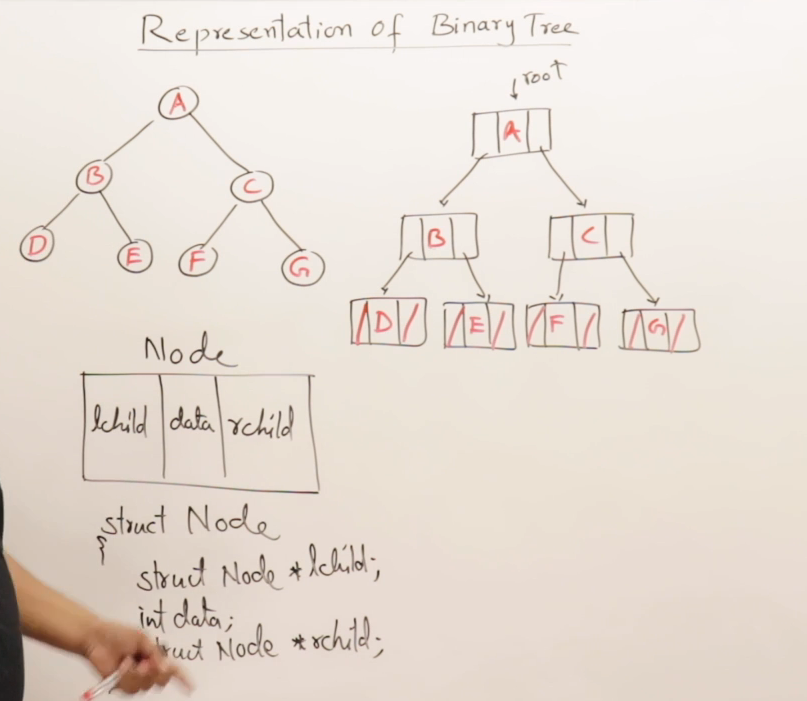 Representation of Binary Tree
A
B
C
D
E
F
G
root
A
B
C
D
E
F
G
Node
lchild data rchild
struct Node
{
struct Node *lchild;
int data;
struct Node *rchild;